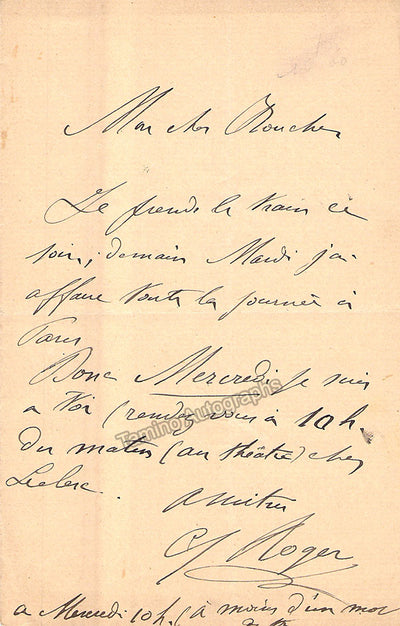 Mon cher Plouchez
Je prends le train ce
soir, demain Mardi j'ai
affaire toute la journée à
Paris
Donc Mercredi je suis
à toi (rendez vous à 10h.
du matin (au théâtre) chez
Leclerc.
amitiés
G Roger
à Mercredi 10h. (à moins d'un mot
TaminoAutographs